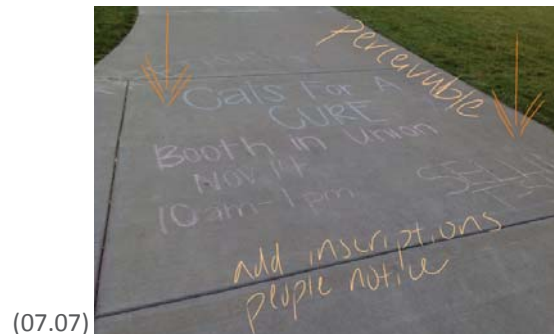 perceivable
Gals For A
CURE
Booth in Union
Nov 14
10am-1pm
add inscriptions
people notice
(07.07)